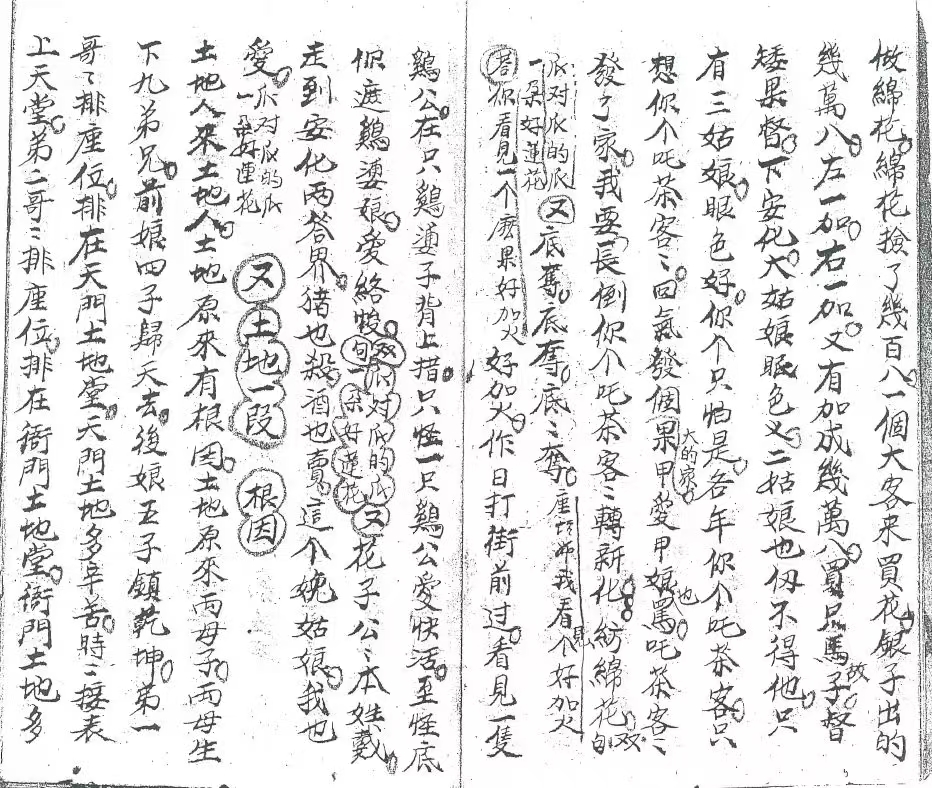 做綿花綿花撿了幾百八一個大客来買花銀子出的
幾萬八左一加右一加又有加成幾萬八買只馬子督
矮果督下安化大姑娘眼色乂二姑娘也仭不得他只
有三姑娘眼色好你个只怕是各年你个吒茶客只
想你个吒茶客〻回氣發個果甲愛甲娘罵吒茶客〻
大的家
也
發了家我要長倒你个吒茶客〻轉新化紡綿花双句
派对派的派
一朵好蓮花
又底奪底奪底〻奪
座師我看个好加火
答你看見一个麽果好加火好加火作日打街前过看見一隻
鷄公在只鷄婆子背上措只怪一只鷄公愛快活至怪底
你遮鷄婆娘愛絡悛双句派对瓜的瓜一朵好蓮花又花子公〻本姓戴
走到安化兩答界猪也殺酒也賣這一个娩姑娘我也
愛派对派的瓜一朵好蓮花
又土地一段 根因
土地人來土地人土地原來有根因土地原來両母子両母生
下九弟兄前娘四子歸天去後娘五子鎮乾坤弟一
哥〻排座位排在天門土地堂天門土地多辛苦時〻接表
上天堂弟二哥〻排座位排在衙門土地堂衙門土地多